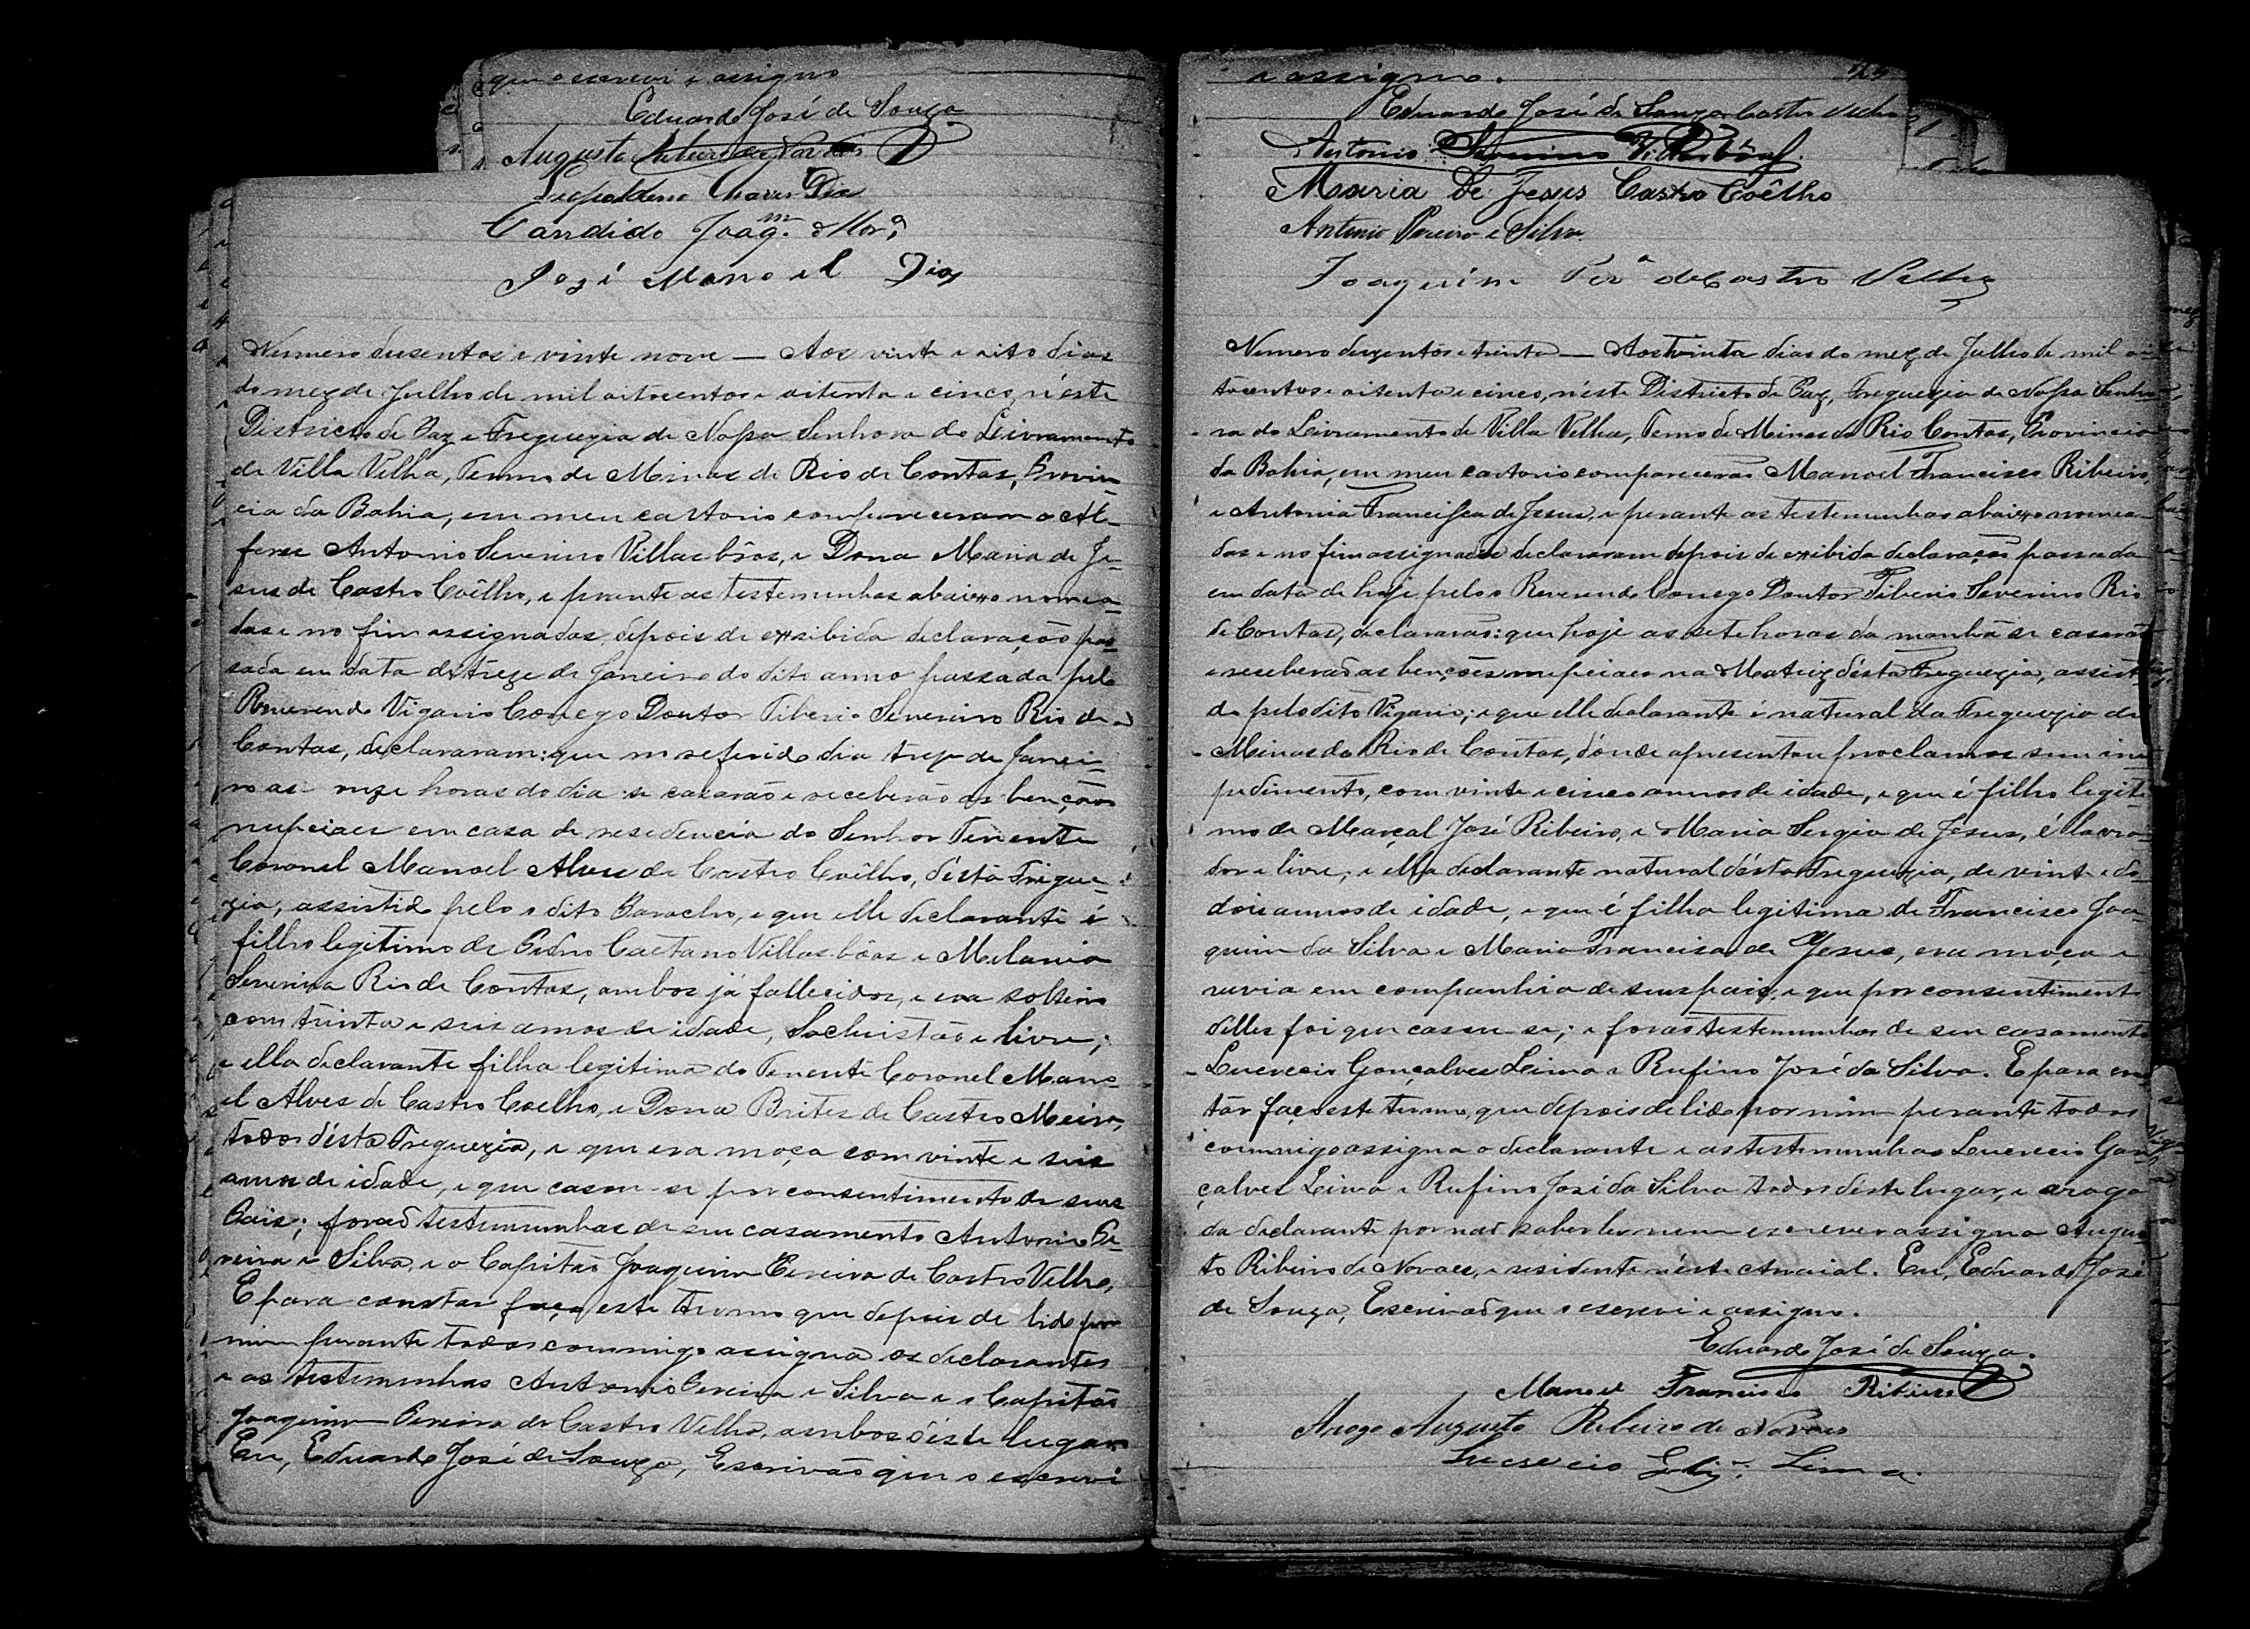 que o escrevi e assigno
Eduardo José de Souza
Augusto Ribeiro de Novaes
Leopoldino Chaves Dias
Candido Joaqm. Morª
José Manoel Dias
Numero dusentos e vinte nove — Aos vinte e oito dias
do mez de Julho de mil oitocentos e oitenta e cinco, n'este
Districto de Paz e Freguezia de Nossa Senhora do Livramento
de Villa Velha, Termo de Minas do Rio de Contas, Provin-
cia da Bahia, em meu cartorio compareceram o Al-
feres Antonio Severino Villas bôas, e Dona Maria de Je-
sus de Castro Coêlho, e perante as testemunhas abaixo nomea-
das e no fim assignados, depois de exsibida declaração pas-
sada em data de treze de Janeiro do dito anno passada pelo
Reverendo Vigario Conego Doutor Tiberio Severino Rio de
Contas, declararam: que no referido dia treze de Janei-
ro as onze horas do dia se casarão e receberão as bençãos
nupciaes em casa de residencia do Senhor Tenente
Coronel Manoel Alves de Castro Coêlho, désta Fregue-
zia, assistido pelo o dito Parocho, e que elle declarante é
filho legitimo de Pedro Caetano Villas-bôas e Melania
Severina Rio de Contas, ambos já fallecidos, e era solteiro
com trinta e seis annos de idade, Sachristão e livre;
e ella declarante filha legitima do Tenente Coronel Mano-
el Alves de Castro Coelho, e Dona Brites de Castro Meira,
todos désta Freguezia, e que era moça com vinte e seis
annos de idade, e que casou-se por consentimento de seus
Pais; forão testemunhas de seu casamento Antonio Pe-
reira e Silva, e o Capitão Joaquim Pereira de Castro Velho,
E para constar faço este termo que depois de lido por
mim perante todos commigo assigna os declarantes
e as testemunhas Antonio Pereira e Silva e o Capitão
Joaquim Pereira de Castro Velho, ambos déste lugar.
Eu, Eduardo José de Souza, Escrivão que o escrevi
e assigno.
Eduardo José de Souza Castro Velho
Antonio Severino Villasbôas
Maria De Jesus Castro Coêlho
Antonio Pereira e Silva
Joaquim Perª de Castro Velho
Numero duzentos e trinta — Aos trinta dias do mez de Julho de mil oi-
tocentos e oitenta e cinco, n'éste Districto de Paz, Freguezia de Nossa Senho-
ra do Livramento de Villa Velha, Termo de Minas do Rio Contas, Provincia
da Bahia, em meu cartorio compareceras Manoel Francisco Ribeiro,
e Antonia Francisca de Jesus, e perante as testemunhas abaixo nomea-
das e no fim assignadas declararam depois de exibida declaração passada
em data de hoje pelo o Reverendo Conego Doutor Tiberio Severino Rio
de Contas, declararão: que hoje as sete horas da manhã se casarão
e receberão as bençães nupciaes na Matriz désta Freguezia, assisti-
do pelo dito Vigario; e que elle declarante é natural da Freguezia de
Minas do Rio de Contas, d'onde apresentou proclamas sem im-
pedimento, com vinte e cinco annos de idade, e que é filho legiti-
mo de Marçal José Ribeiro, e Maria Sergia de Jesus, é lavra-
dor e livre; e ella declarante natural désta Freguezia, de vinte e do-
dois annos de idade, e que é filha legitima de Francisco Joa-
quim da Silva e Maria Francisca de Jesus, era moça e
vivia em companhia de seus pais, e que por consentimento
délles foi que casou-se; e forão testemunhas de seu casamento
Lucrecio Gonçalves Lima e Rufino José da Silva. E para cons-
tar faço este termo, que depois de lido por mim perante todos
commigo assigna o declarante e as testemunhas Lucrecio Gon-
çalves Lima e Rufino José da Silva todos déste lugar, e arogo
da declarante por não saber ler nem escrever assigna Augus-
to Ribeiro de Novaes, e residente n'éste Arraial. Eu, Eduardo José
de Souza, Escrivão que o escrevi e assigno.
Eduardo José de Souza.
Manoel Francisco Ribeiro
Arogo Augusto Ribeiro de Novaes
Lucrecio Glz. Lima